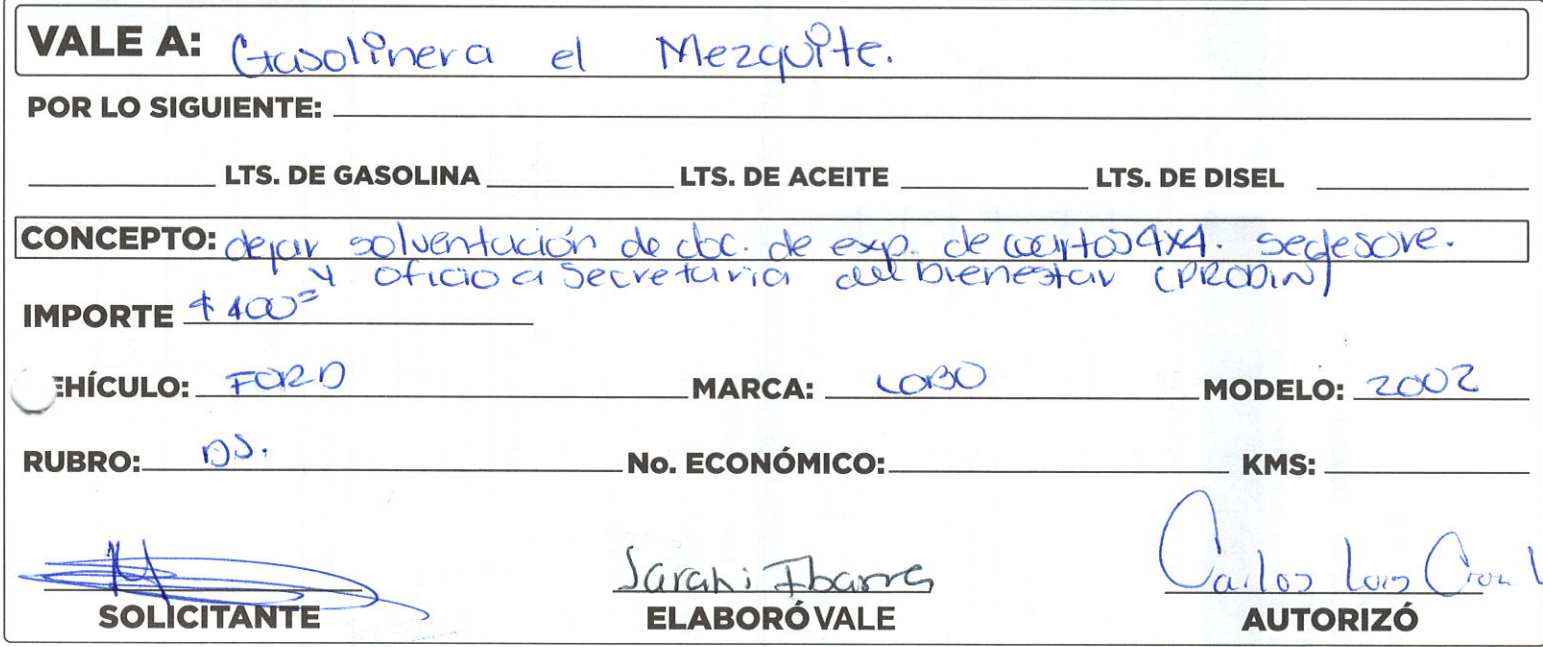 VALE A: Gasolinera el Mezquite.
POR LO SIGUIENTE:
LTS. DE GASOLINA LTS. DE ACEITE LTS. DE DISEL
CONCEPTO: dejar solventación de doc. de exp. de cuartos 4x4. sedesore.
y oficio a Secretaria del bienestar (PRODIN)
IMPORTE $400=
EHÍCULO: FORD MARCA: LOBO MODELO: 2002
RUBRO: DS. No. ECONÓMICO: KMS:
Sarahi Ibarra Carlos Luis Cruz
SOLICITANTE ELABORÓ VALE AUTORIZÓ